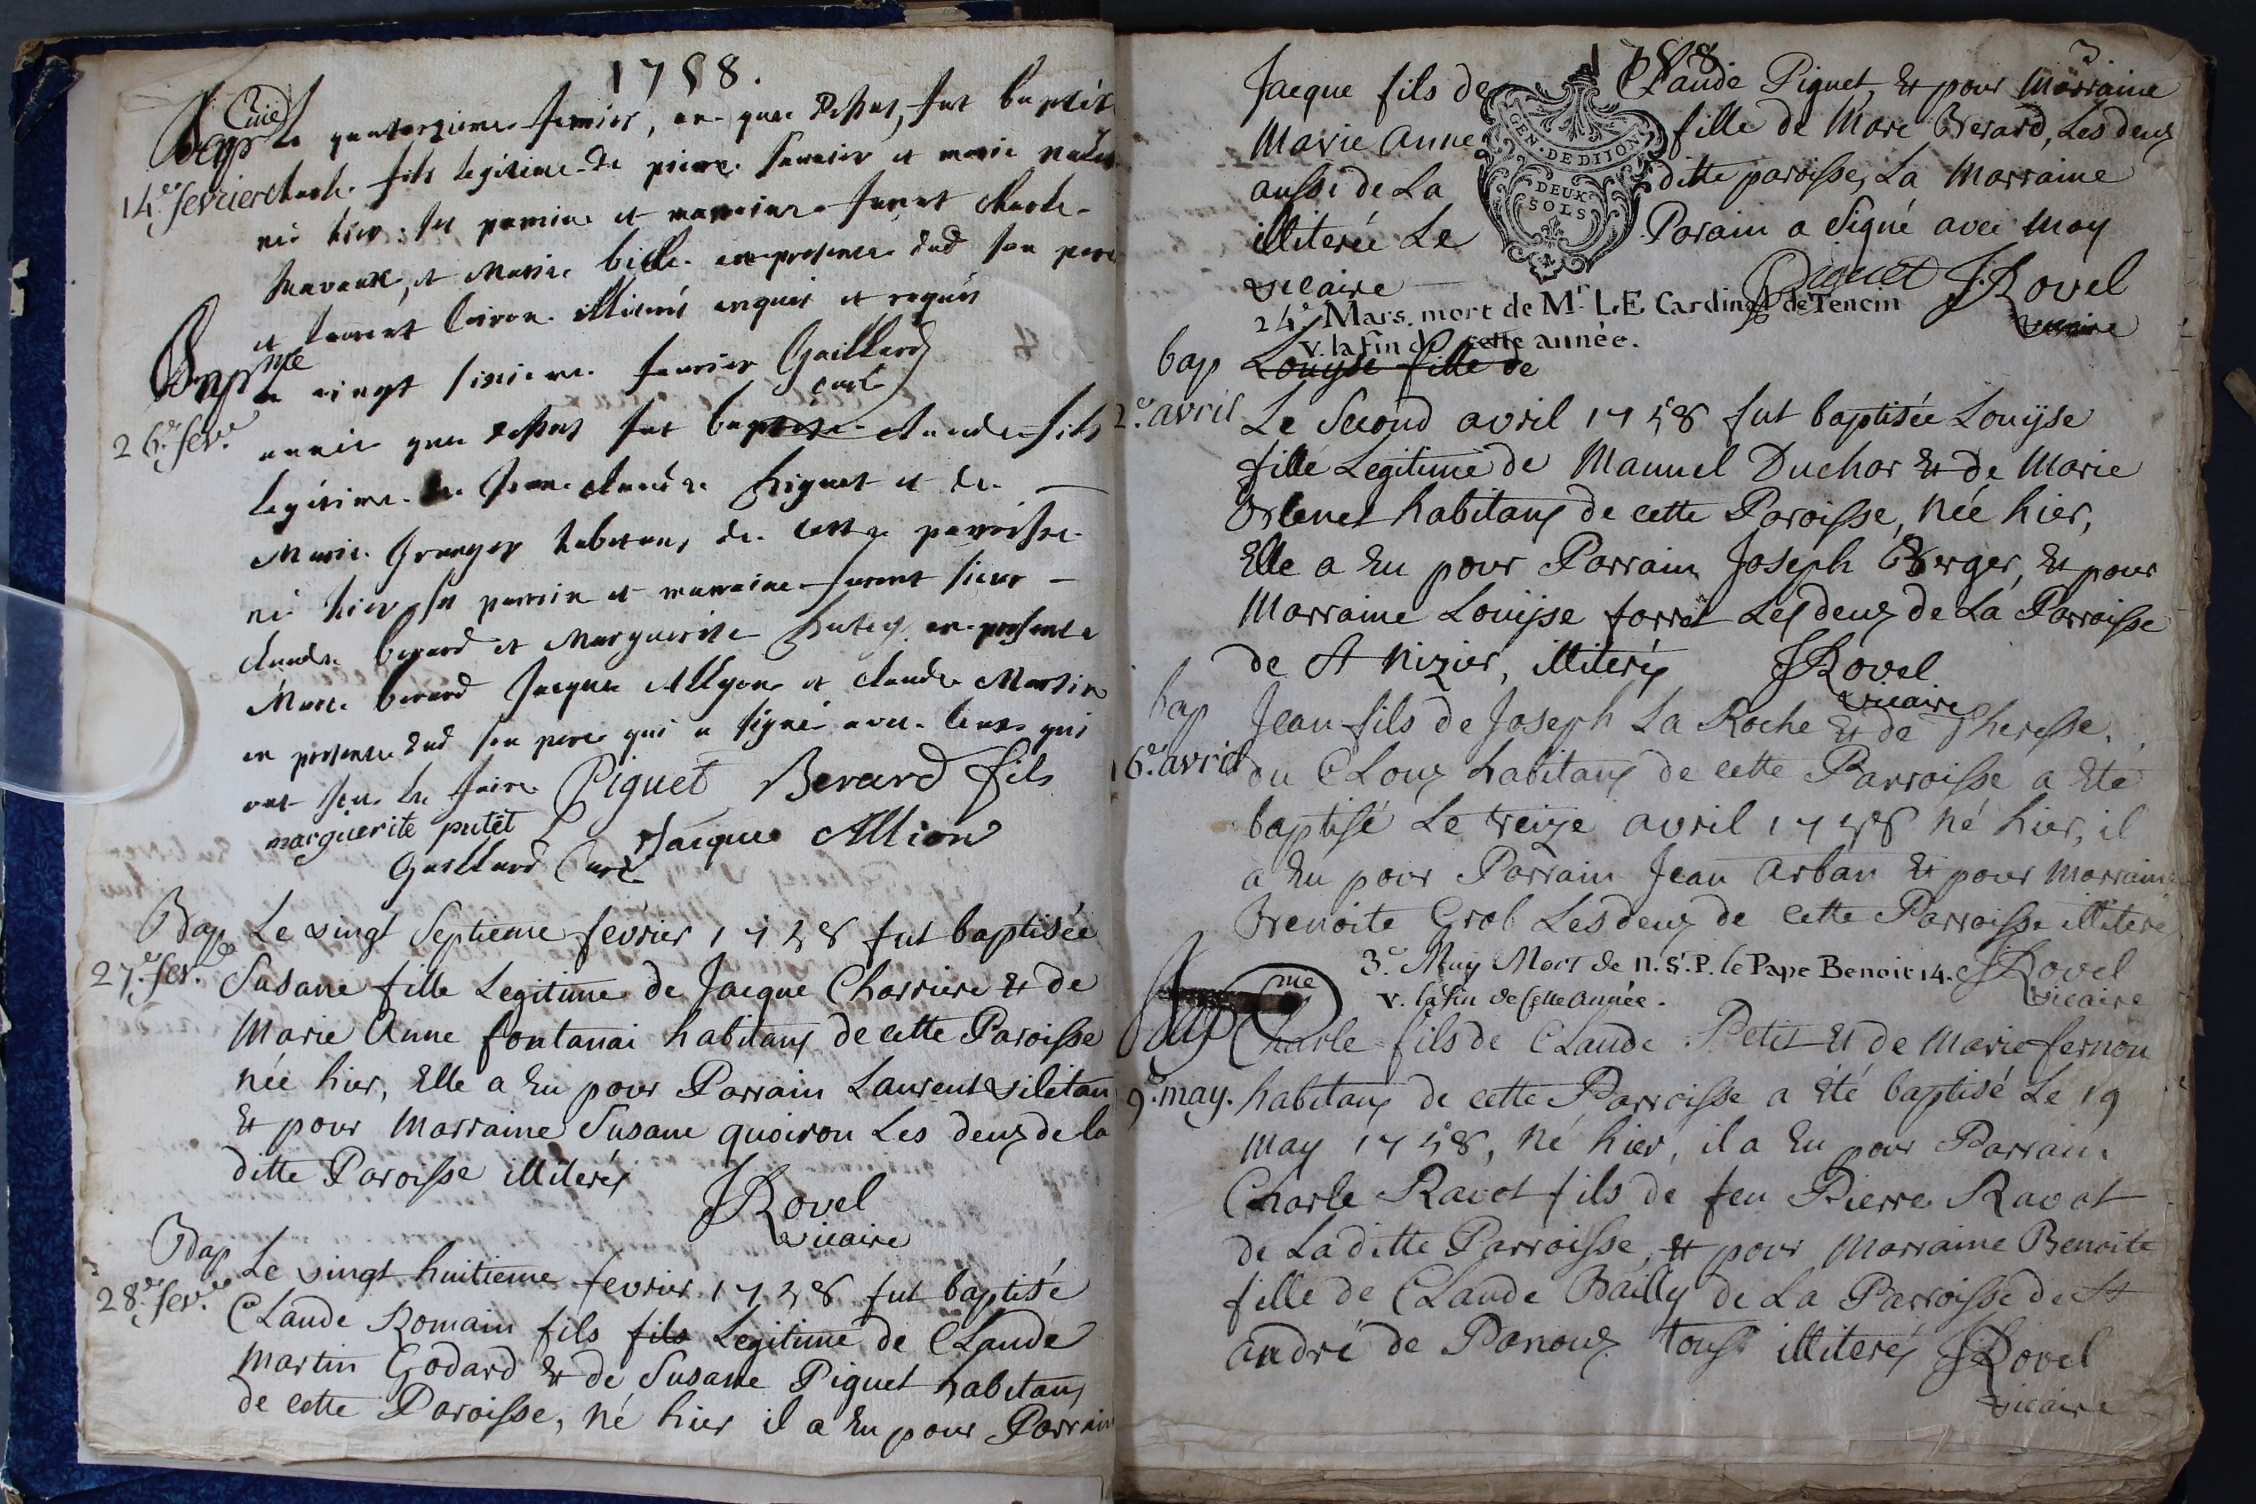 1758.
Bap Cme Le quatorzieme fevrier, an que dessus, fut baptisé
14.e fevrier charle fils legitime de pierre et marie
né hier, ses parrain et marraine furent charle
et Marie en presence dud son pere
et laurent illiterés enquis et requis
Gaillard curé
Bapme Le vingt sixieme fevrier
26.e fev.r année que dessus fut baptisé claude fils
legitime de Jean claude Piguet et de
Marie Granger habitans de cette parroisse
né hier, ses parrain et marraine furent sieur
claude berard et Marguerite Putet en presence
Marc berard Jacque Allyon et claude Martin
en presence dud son pere qui a signé avec ceux qui
ont sçeu le faire Piguet Berard fils
marguerite putet Jacque Allion
Gaillard Curé
Bap Le vingt Septieme fevrier 1758 fut baptisée
27.e fev.r Susane fille Legitime de Jacque Charriere & de
Marie Anne fontanai habitans de cette Paroisse
née hier, Elle a Eu pour Parrain Laurent viletan
& pour Marraine Susane quoiron Les deux de la
ditte Paroisse illiterés
JRovel
vicaire
Bap Le vingt huitieme fevrier 1758 fut baptisé
28.e fev.r Claude Romain fils fils Legitime de Claude
Martin Godard & de Susane Piguet habitans
de cette Paroisse, né hier il a Eu pour Parrain
1758
3
Jacque fils de Claude Piguet, & pour Marraine
Marie Anne fille de Marc Berard, Les deux
aussi de La ditte paroisse, La Marraine
illiterée Le Parain a Signé avec moy
vicaire
GEN. DE DIJON
DEUX
SOLS
Piguet JRovel
vicaire
24.e Mars. mort de Mr. LE Cardinal de Tencin
v. la fin de cette année.
bap Louyse fille de
2.e avril Le Second avril 1758 fut baptisée Louyse
fille Legitime de Manuel Duchar & de Marie
habitans de cette Paroisse, née hier,
Elle a Eu pour Parrain Joseph Berger, & pour
Marraine Louyse forret Les deux de La Parroisse
de St Nizier, illiterés JRovel
vicaire
bap Jean fils de Joseph La Roche & de Theresse
16.e avril du Cloux habitans de cette Parroisse a Eté
baptisé Le seize avril 1758 né hier, il
a Eu pour Parrain Jean Arban & pour Marraine
Benoite Grob Les deux de cette Parroisse illiteré
JRovel
vicaire
3.e May Mort de n. S. P. le Pape Benoit 14.
v. la fin de cette année.
Bapme Charle fils de Claude Petit & de Marie fernon
9.e may. habitans de cette Parroisse a été baptisé Le 19
May 1758, né hier, il a Eu pour Parrain
Charle Ravot fils de feu Pierre Ravot
de La ditte Parroisse, & pour Marraine Benoite
fille de Claude Bailly de La Parroisse de St
andré de Panoux tous illiterés JRovel
vicaire